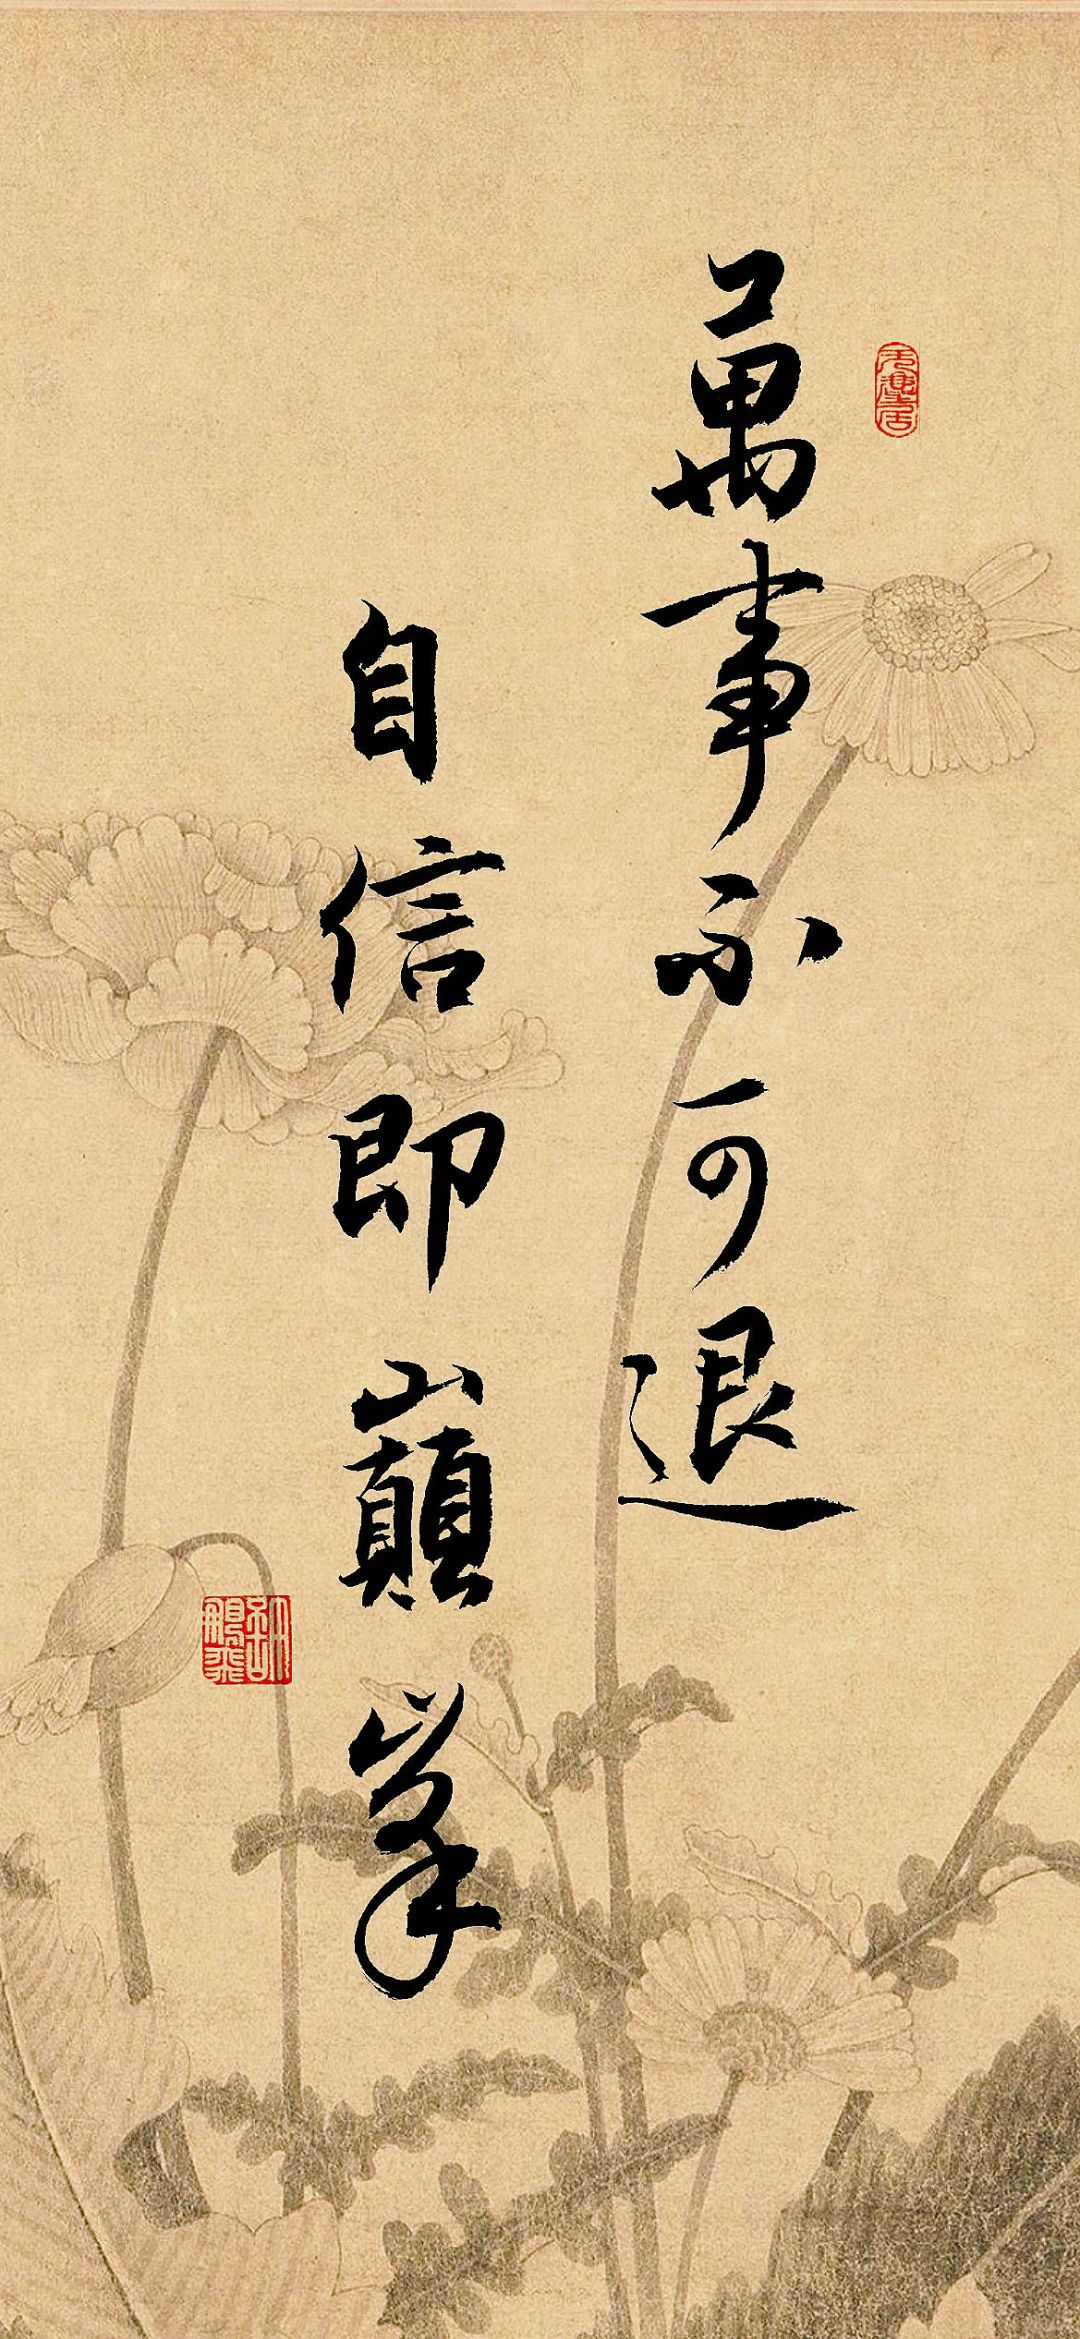 萬事不可退
自信即巔峯